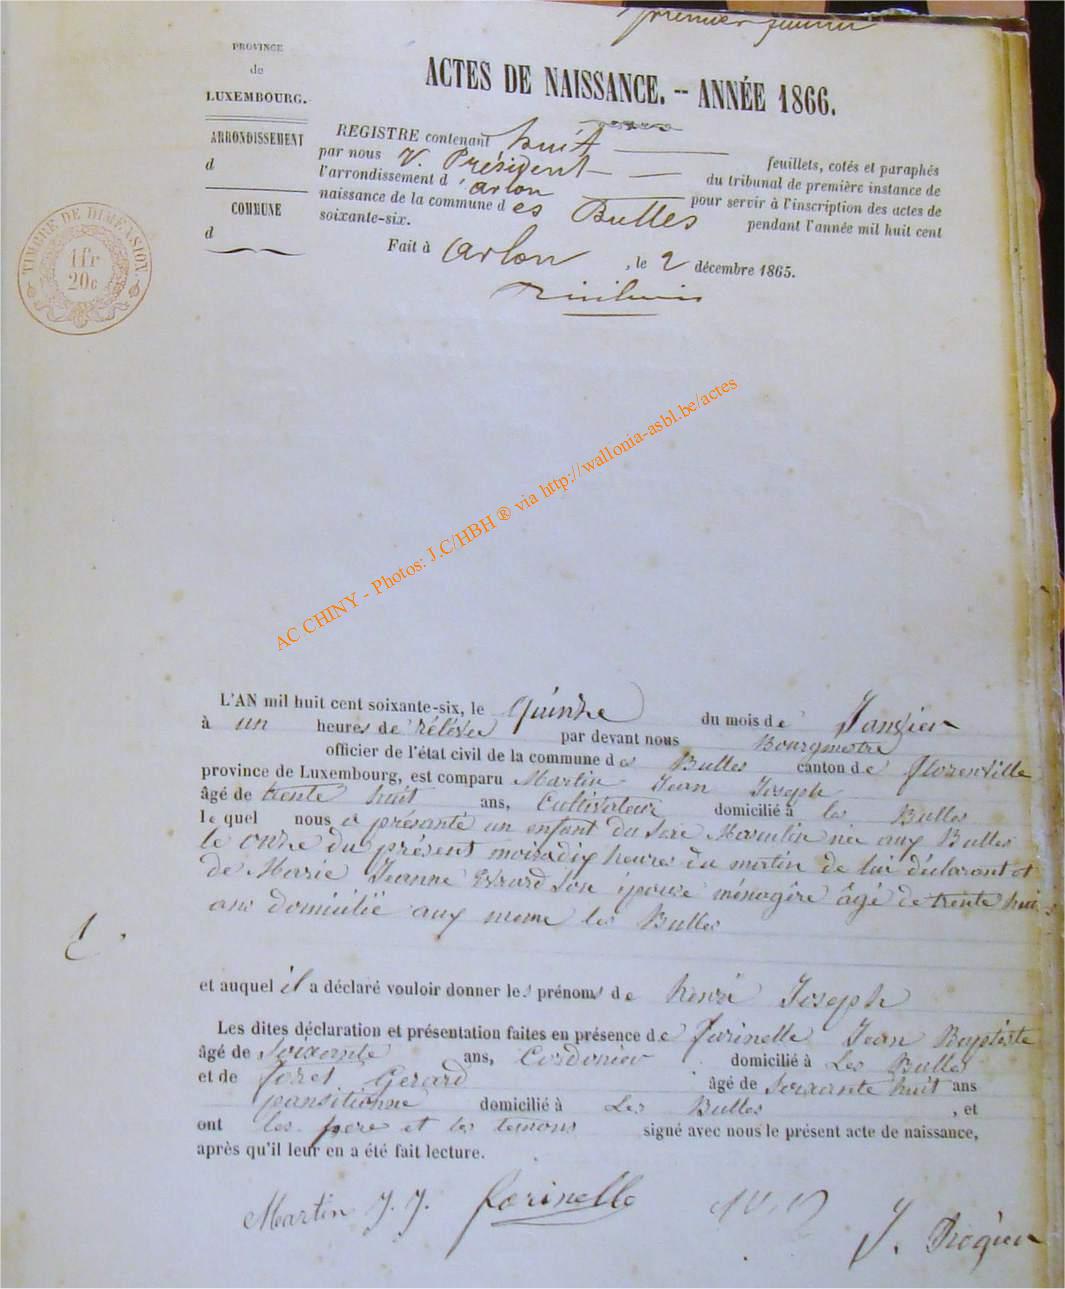 premier
PROVINCE
de
LUXEMBOURG.
ARRONDISSEMENT
d
COMMUNE
d
TIMBRE DE DIMENSION.
1fr
20c
ACTES DE NAISSANCE. -- ANNÉE 1866.
REGISTRE contenant huit feuillets, cotés et paraphés
par nous V. Président du tribunal de première instance de
l'arrondissement d'arlon pour servir à l'inscription des actes de
naissance de la commune des Bulles pendant l'année mil huit cent
soixante-six.
Fait à arlon, le 2 décembre 1865.
AC CHINY - Photos: J.C/HBH ® via http://wallonia-asbl.be/actes
L'AN mil huit cent soixante-six, le quinze du mois de Janvier
à un heures de rélévée par devant nous Bourgmestre
officier de l'état civil de la commune des Bulles canton de florenville
province de Luxembourg, est comparu Martin Jean Joseph
âgé de trente huit ans, Cultivateur domicilié à les Bulles
le quel nous a présanté un enfant du sexe Masculin née aux Bulles
le onze du présent mois a dix heures du matin de lui déclarant et
de Marie Jeanne Evrard son épouse ménagère âgé de trente huit
ans domicilié aux meme les Bulles
1.
et auquel il a déclaré vouloir donner les prénoms de henri Joseph
Les dites déclaration et présentation faites en présence de farinelle Jean Baptiste
âgé de soixante ans, Cordonier domicilié à Les Bulles
et de foret Gerard âgé de soixante huit ans
pansitionné domicilié à Les Bulles, et
ont les pere et les temons signé avec nous le présent acte de naissance,
après qu'il leur en a été fait lecture.
Martin J. J. farinelle J. Proqien